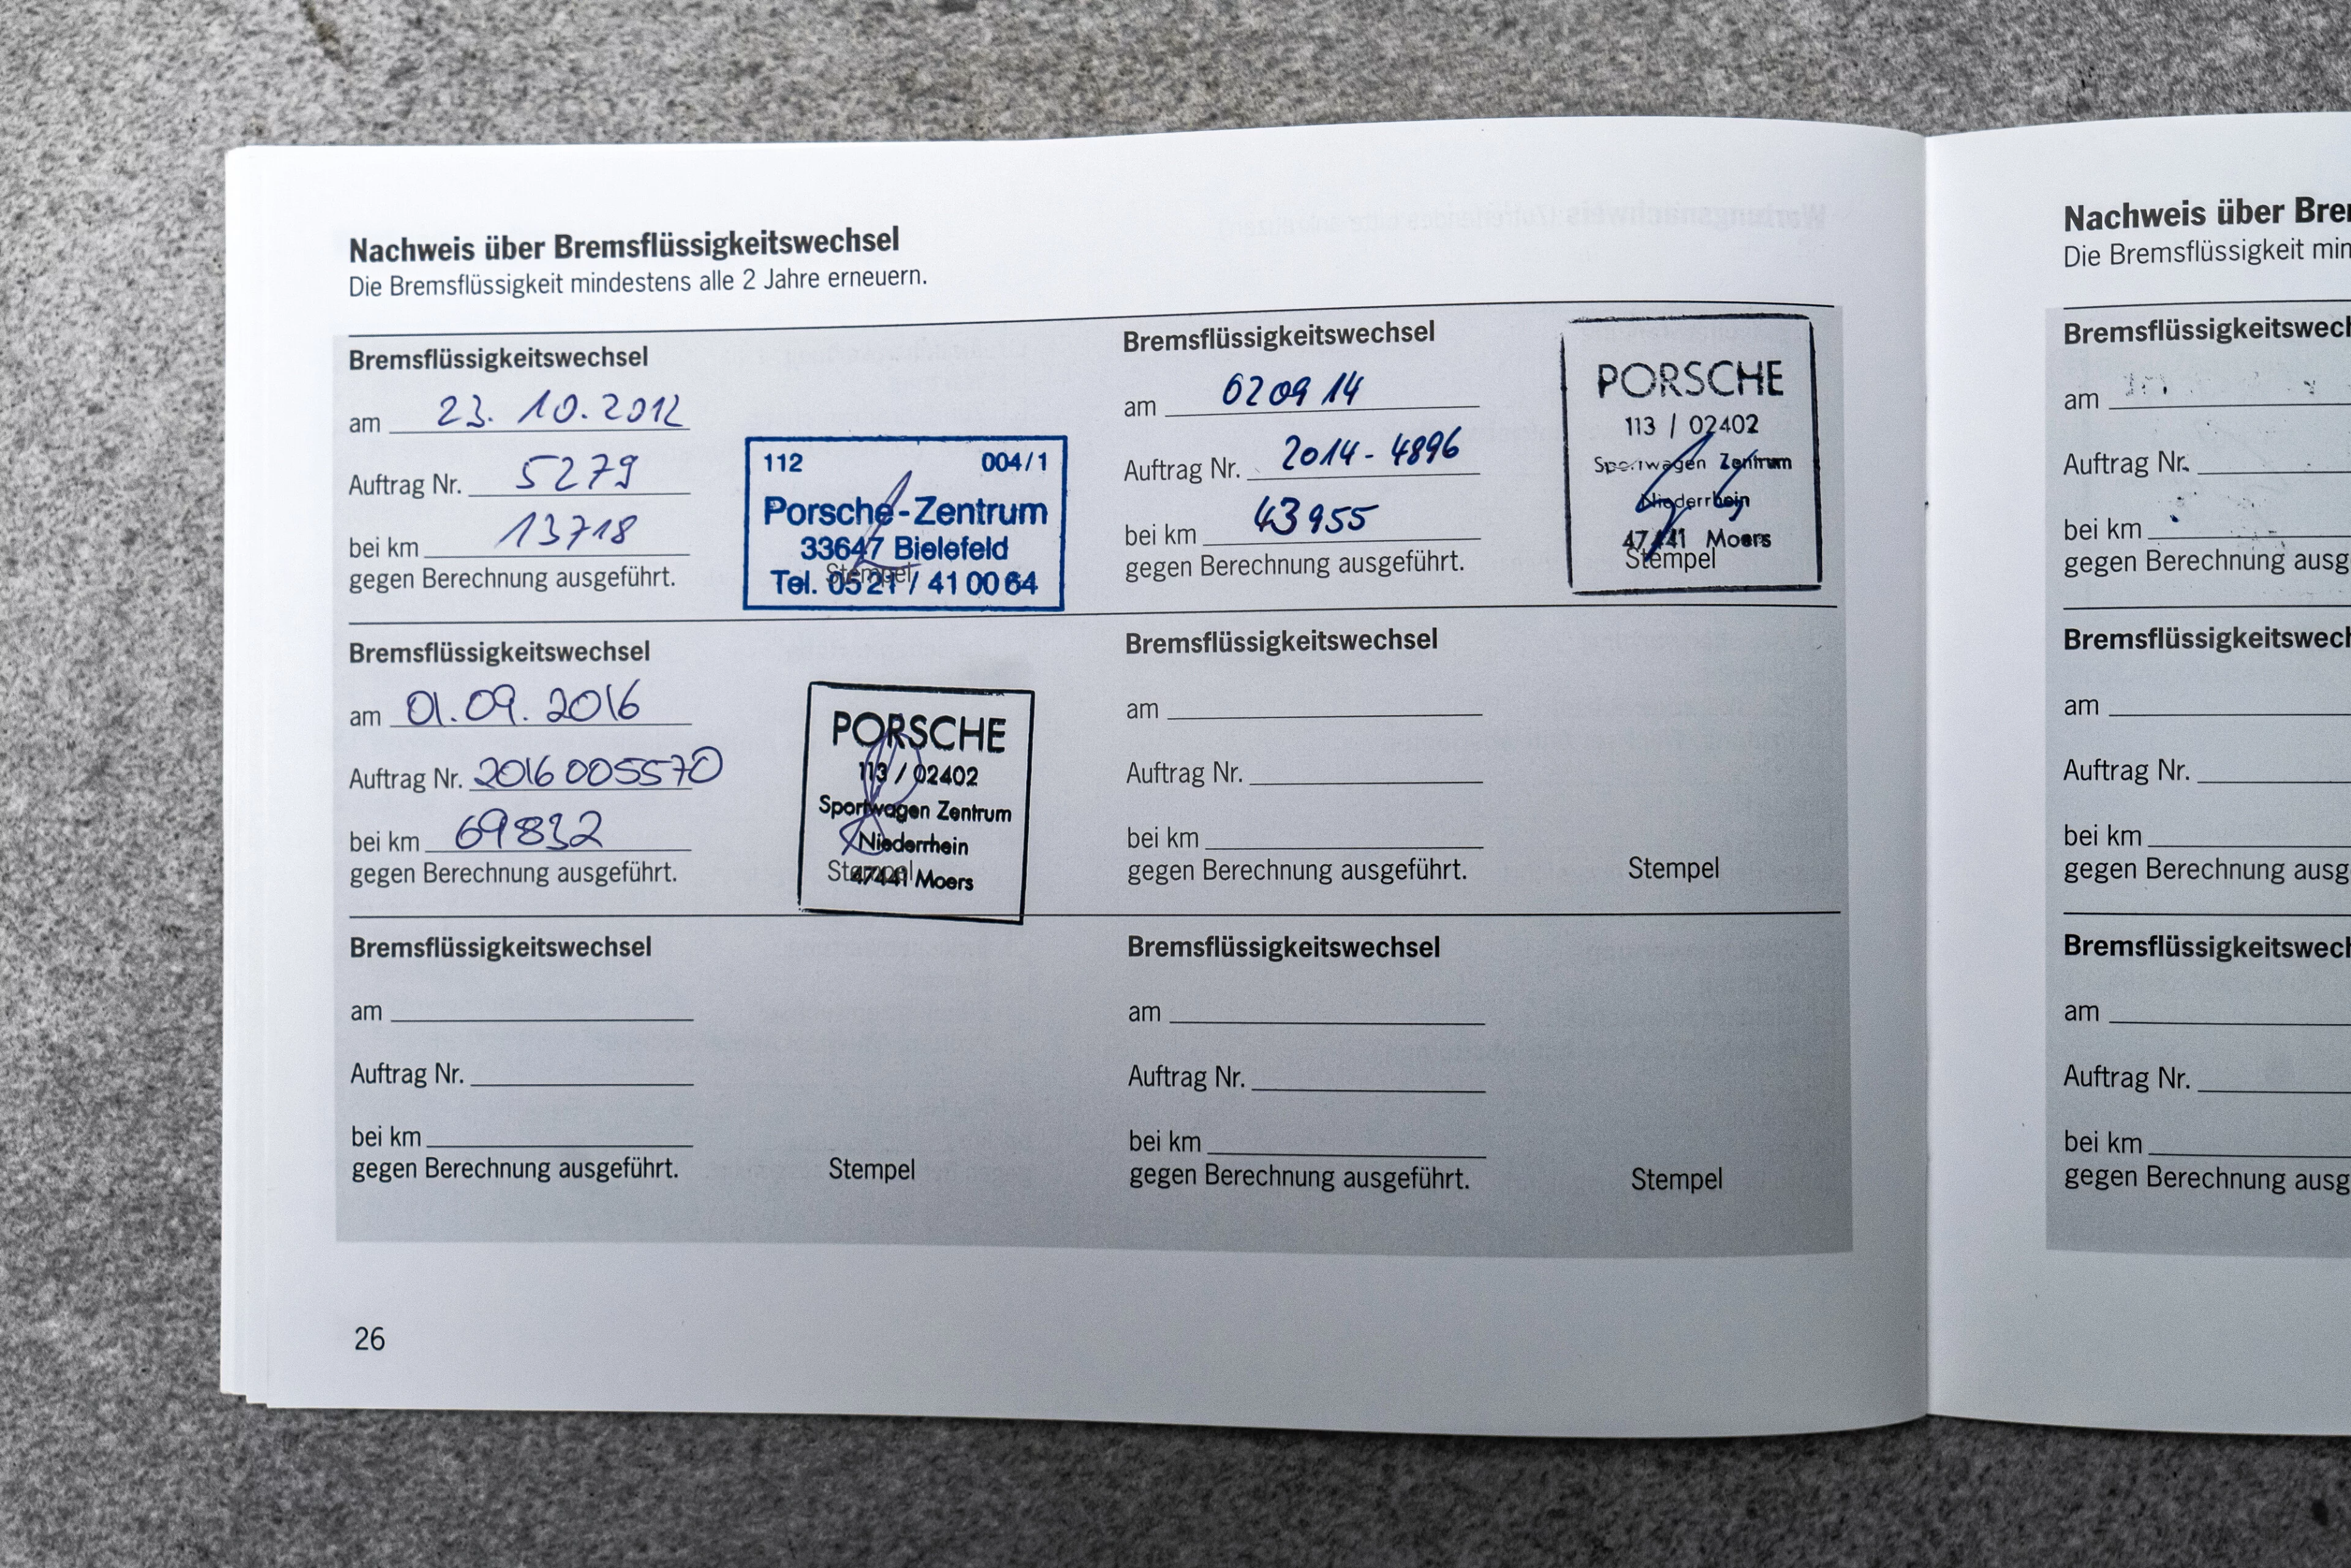 Nachweis über Bremsflüssigkeitswechsel
Die Bremsflüssigkeit mindestens alle 2 Jahre erneuern.
Bremsflüssigkeitswechsel
am 23. 10. 2012
Auftrag Nr. 5279
bei km 13718
gegen Berechnung ausgeführt.
112 004/1
Porsche-Zentrum
33647 Bielefeld
Tel. 05 21 / 41 00 64
Stempel
Bremsflüssigkeitswechsel
am 02 09 14
Auftrag Nr. 2014-4896
bei km 43955
gegen Berechnung ausgeführt.
PORSCHE
113 / 02402
Sportwagen Zentrum
Niederrhein
47441 Moers
Stempel
Bremsflüssigkeitswechsel
am 01.09.2016
Auftrag Nr. 2016005570
bei km 69832
gegen Berechnung ausgeführt.
PORSCHE
113 / 02402
Sportwagen Zentrum
Niederrhein
47441 Moers
Stempel
Bremsflüssigkeitswechsel
am
Auftrag Nr.
bei km
gegen Berechnung ausgeführt.
Stempel
Bremsflüssigkeitswechsel
am
Auftrag Nr.
bei km
gegen Berechnung ausgeführt.
Stempel
Bremsflüssigkeitswechsel
am
Auftrag Nr.
bei km
gegen Berechnung ausgeführt.
Stempel
26
Nachweis über Bre
Die Bremsflüssigkeit min
Bremsflüssigkeitswech
am
Auftrag Nr.
bei km
gegen Berechnung ausg
Bremsflüssigkeitswech
am
Auftrag Nr.
bei km
gegen Berechnung ausg
Bremsflüssigkeitswech
am
Auftrag Nr.
bei km
gegen Berechnung ausg